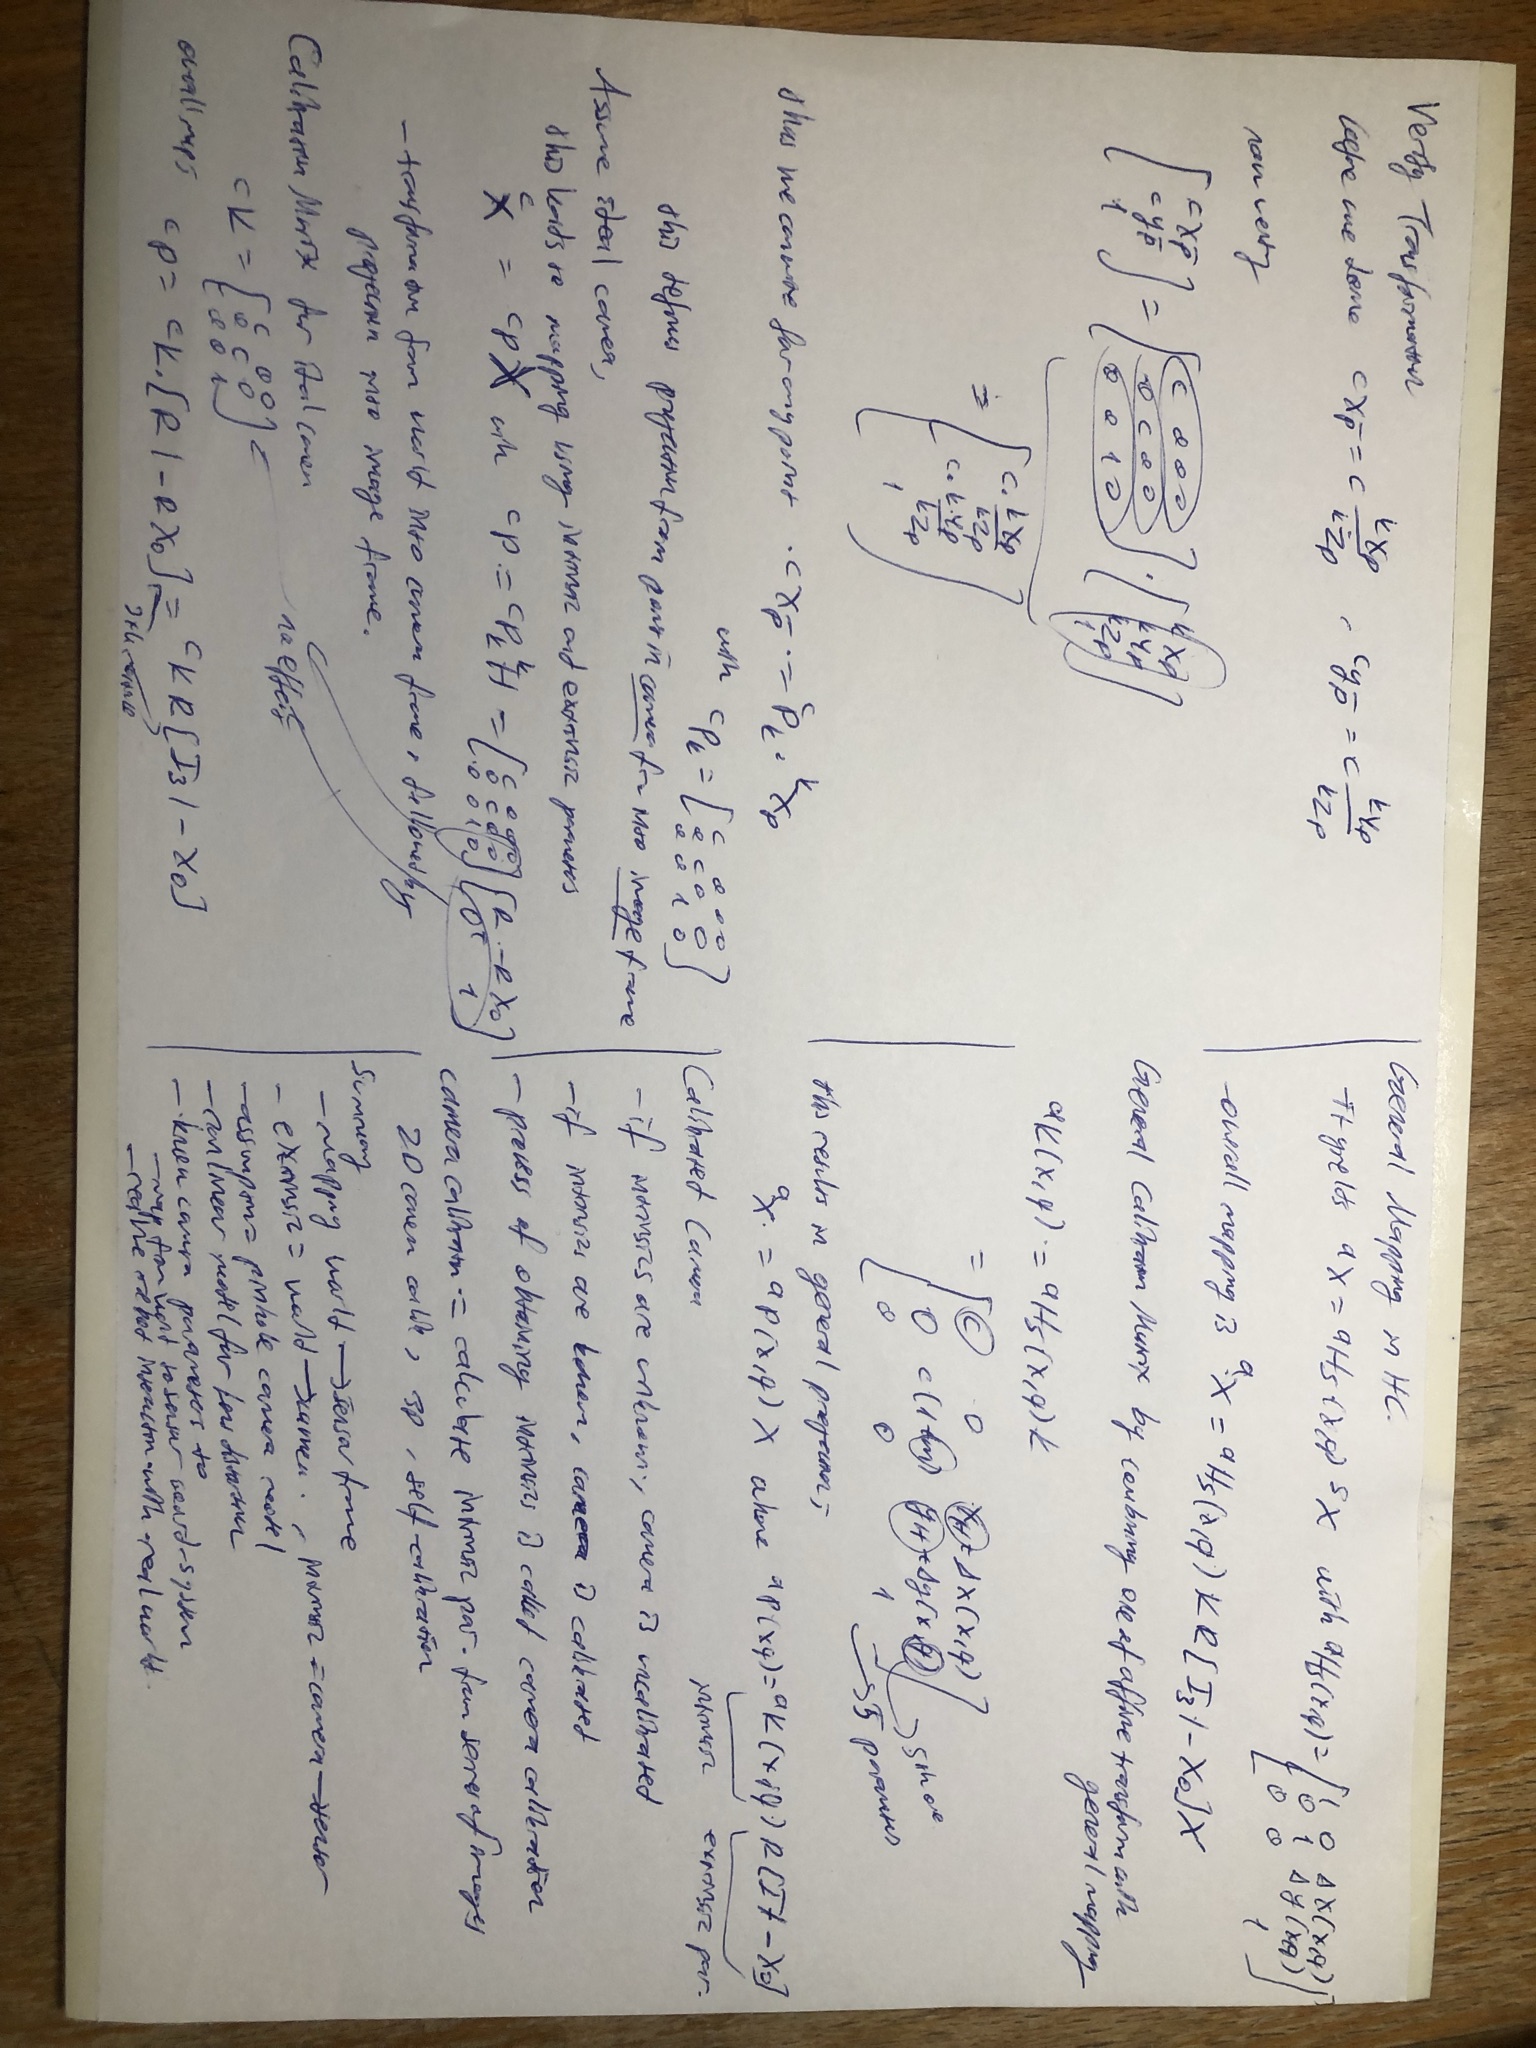 Verify Transformation
before we done cxp̄ = c kxp/kzp , cyp̄ = c kyp/kzp
now verify
[cxp̄ cyp̄ 1] = [c 0 0 0 0 c 0 0 0 0 1 0] · [kxp kyp kzp 1]
= [c · kxp/kzp c · kyp/kzp 1]
thus we can write for any point · cxp̄ := cPk · kxp
with cPk = [c 0 0 0 0 c 0 0 0 0 1 0]
this defines projection from point in camera fr. into image frame
Assume ideal camera,
this leads to mapping using intrinsic and extrinsic parameters
cx = cPX with cP := cPk kH = [c 0 0 0 0 c 0 0 0 0 1 0] [R -RX0 0T 1]
- transformation from world into camera frame, followed by
projection into image frame.
Calibration Matrix for ideal camera
cK = [c 0 0 0 c 0 0 0 1]
no effect
overall maps cP = cK · [R | -RX0] = cKR[I3 | -X0]
3x4 matrix
General Mapping in HC.
It yields ax = aHs(x,q) sx with aHs(x,q) = [1 0 Δx(x,q) 0 1 Δy(x,q) 0 0 1]
- overall mapping is ax = aHs(x,q) KR[I3 | -X0]X
General Calibration Matrix by combining one of affine transform with
general mapping
aK(x,q) := aHs(x,q)K
= [c 0 xH + Δx(x,q) 0 c(1+m) yH + Δy(x,q) 0 0 1]
5 parameters
this results in general projection;
ax = aP(x,q) X where aP(x,q) = aK(x,q) R[I | -X0]
intrinsic extrinsic par.
Calibrated Camera
- if intrinsics are unknown, camera is uncalibrated
- if intrinsics are known, camera is calibrated
- process of obtaining intrinsics is called camera calibration
camera calibration := calculate intrinsic par. from series of images
2D camera calib, 3D, self-calibration
Summary
- mapping world → sensor frame
- extrinsic = world → camera, intrinsic = camera → sensor
- assumption = pinhole camera model
- nonlinear model for lens distortion
- known camera parameters to
- map from world to sensor coord-system